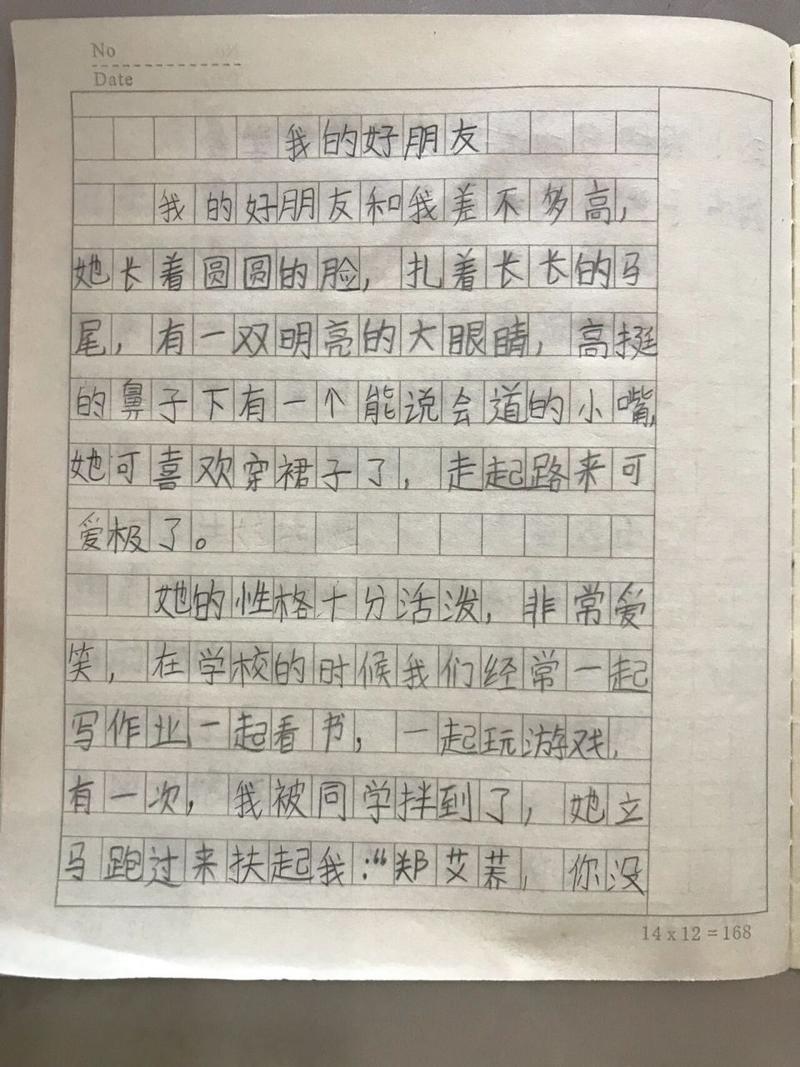 No
Date
我的好朋友
我的好朋友和我差不多高，
她长着圆圆的脸，扎着长长的马
尾，有一双明亮的大眼睛，高挺
的鼻子下有一个能说会道的小嘴，
她可喜欢穿裙子了，走起路来可
爱极了。
她的性格十分活泼，非常爱
笑，在学校的时候我们经常一起
写作业一起看书，一起玩游戏，
有一次，我被同学拌到了，她立
马跑过来扶起我：“郑艾荞，你没
14x12=168